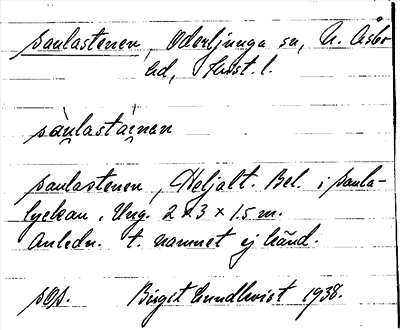 paulastenen, Oderljunga sn, N. Åsbo
hd, Krist. l.
pàulastàinan
paulastenen, Heljalt. Bel. i paula-
lyckan. Ung. 2 x 3 x 1.5 m.
Anledn. t. namnet ej känd.
pop. Birgit Lundkvist 1938.